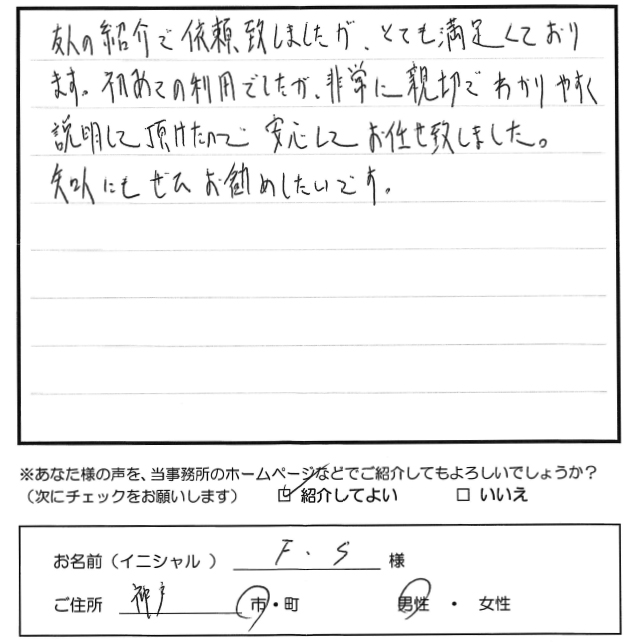 友人の紹介で依頼致しましたが、とても満足しており
ます。初めての利用でしたが、非常に親切でわかりやすく
説明して頂けたので安心してお任せ致しました。
知人にもぜひお勧めしたいです。
※あなた様の声を、当事務所のホームページなどでご紹介してもよろしいでしょうか？
（次にチェックをお願いします） ☑ 紹介してよい □ いいえ
お名前（イニシャル ） F.S 様
ご住所 神戸 市・町 男性 ・ 女性